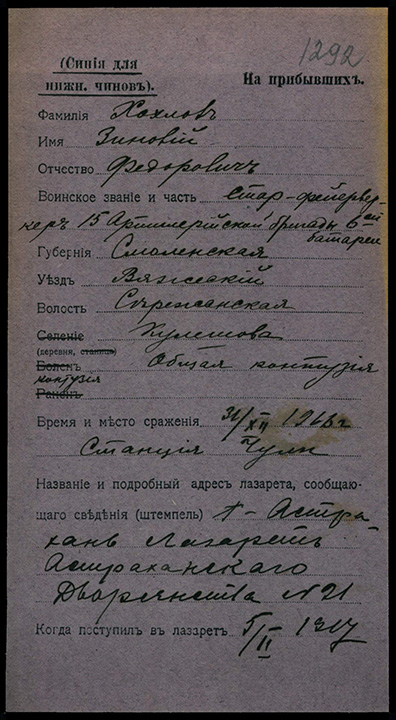 1292
(Синія для
нижн. чиновъ).
На прибывшихъ.
Фамилія Хохловъ
Имя Зиновій
Отчество Федоровичъ
Воинское званіе и часть Стар-фейервер-
керъ 15 Артиллерійской бригады 6-ой
батареи
Губернія Смоленская
Уѣздъ Вяземскій
Волость
Селеніе Кулешова
(деревня, станица)
Боленъ Общая контузія
контузія
Раненъ
Время и мѣсто сраженія 31/XII 1916 г
Станція
Названіе и подробный адресъ лазарета, сообщаю-
щаго свѣдѣнія (штемпель) г- Астра-
хань Лазаретъ
Астраханскаго
Дворянства N 21
Когда поступилъ въ лазаретъ 5/II 1917